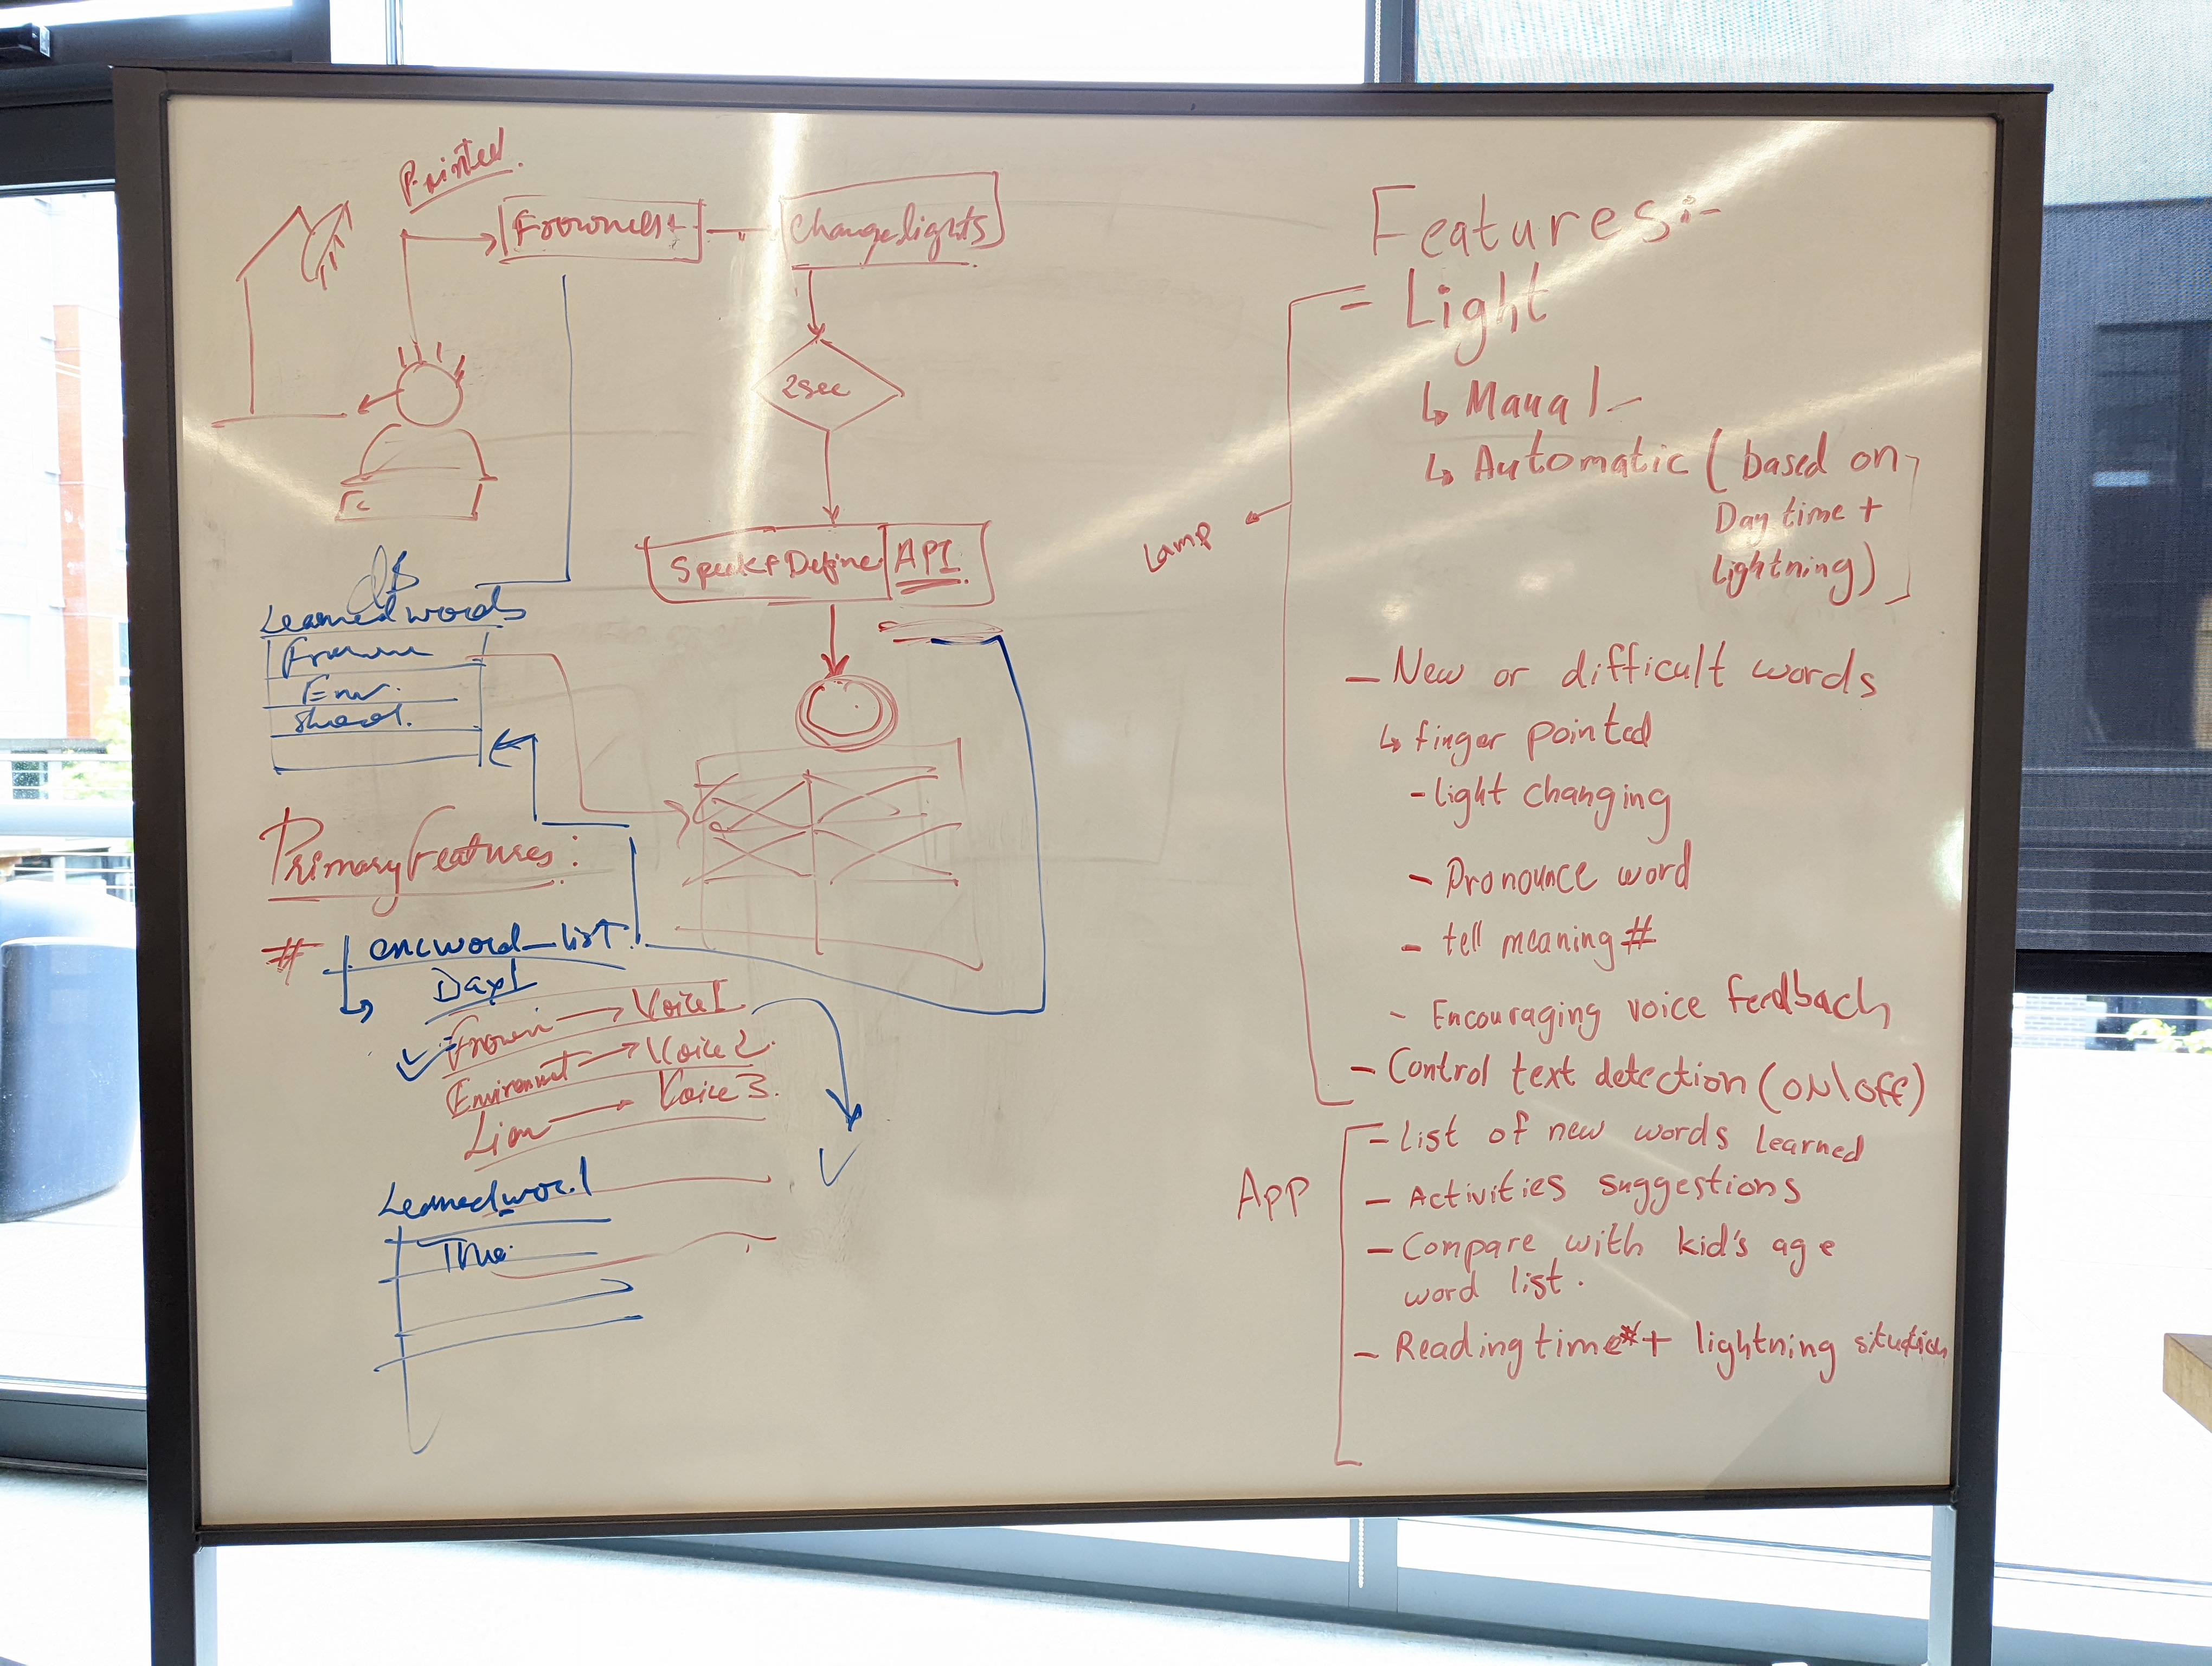 Pointed.
Change lights
2sec
Speak + Define API
db
Learned words
Frown
Env.
Primary Features:
# encword_list
Day1
Frown → Voice1
→ Voice 2.
Lion → Voice 3.
Learned word
Features:-
= Light
↳ Manaal -
↳ Automatic (based on
Day time +
Lightning)
Lamp
- New or difficult words
↳ finger pointed
- light changing
- Pronounce word
- tell meaning #
- Encouraging voice feedback
- Control text detection (ON\OFF)
App
- List of new words Learned
- Activities suggestions
- Compare with kid's age
word list.
- Reading time*+ lightning situation